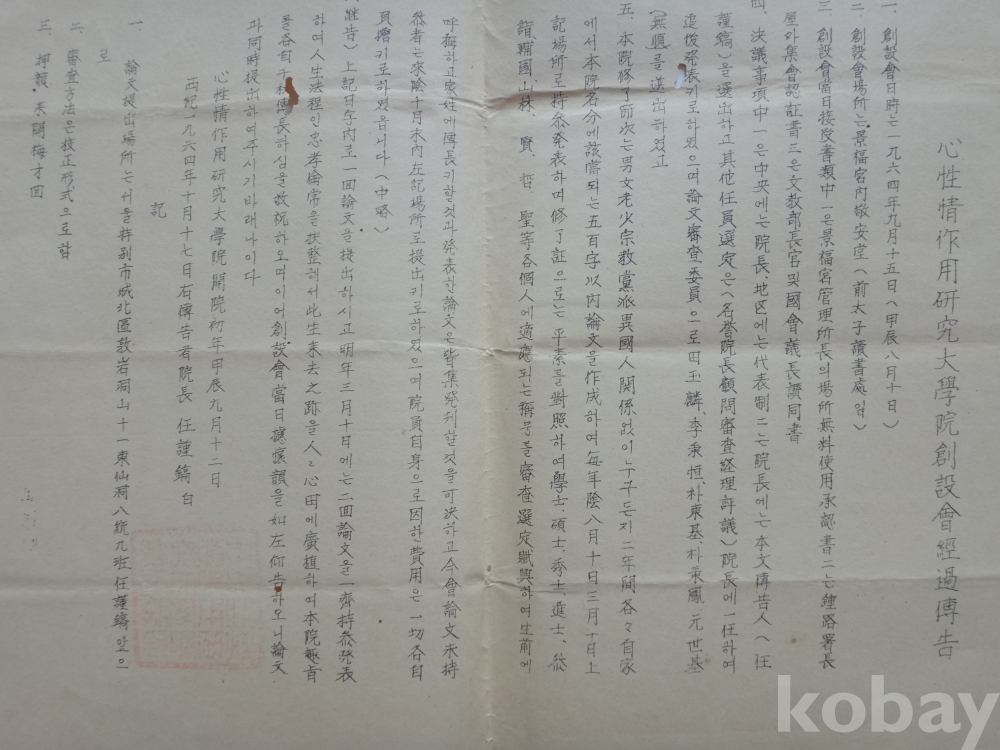 心性情作用研究大學院創設會經過傳告
一、創設會日時는一九六四年九月十五日(甲辰八月十日)
二、創設會場所는景福宮內敬安堂(前太子讀書處임)
三、創設會當日接受書類中一은景福宮管理所長의場所無料使用承認書二는鍾路署長
屋外集會認証書三은文敎部長官및國會議長讚同書
四、決議事項中一은中央에는院長、地区에는代表制二는院長에는本文傳告人(任
謹鎬)을選出하고其他任員選定은(名誉院長顧問審査経理評議)院長에一任하여
追後発表키로하였으며論文審査委員으로田玉麟、李秉恒、朴東基、朴秉鳳、元世基
(無順)를選出하였고
五、本院修了節次는男女老少宗教黨派異國人関係없이누구든지二年間各々自家
에서本院名分에該當되는五百字以內論文을作成하여每年陰八月十日三月十日上
記場所로持參発表하며修了証으로는平素를對照하여學士、碩士、秀士、進士、
諱、輔國、山林、賢、哲、聖等各個人에適應되는稱号를審査選定賦與하여生前에
呼稱하고後姓에傳長키할것과発表한論文은皆集発刊할것을可決하고今會論文未持
參者는來陰十月末內左記場所로提出키로하였으며院員自身으로因한費用은一切各自
負擔키로하였읍니다(中略)
(継告)上記日字內로一回論文을提出하시고明年三月十日에는二回論文을一齊持參発表
하여人生法程인忠孝倫常을扶整해서此生來去之跡을人々心田에廣植하여本院趣旨
를各自子孫傳長하심을敬祝하오며이어創設會當日據懷韻을如左仰告하오니論文
과同時提出하여주시기바래나이다
心性情作用研究大學院開院初年甲辰九月十二日
西紀一九六四年十月十七日右傳告者院長 任謹鎬 白
記
一、論文提出場所는서울特別市城北區敦岩洞山十一東仙洞八統九班任謹鎬앞으
로
二、審査方法은校正形式으로함
三、押韻・來開梅才回
kobay